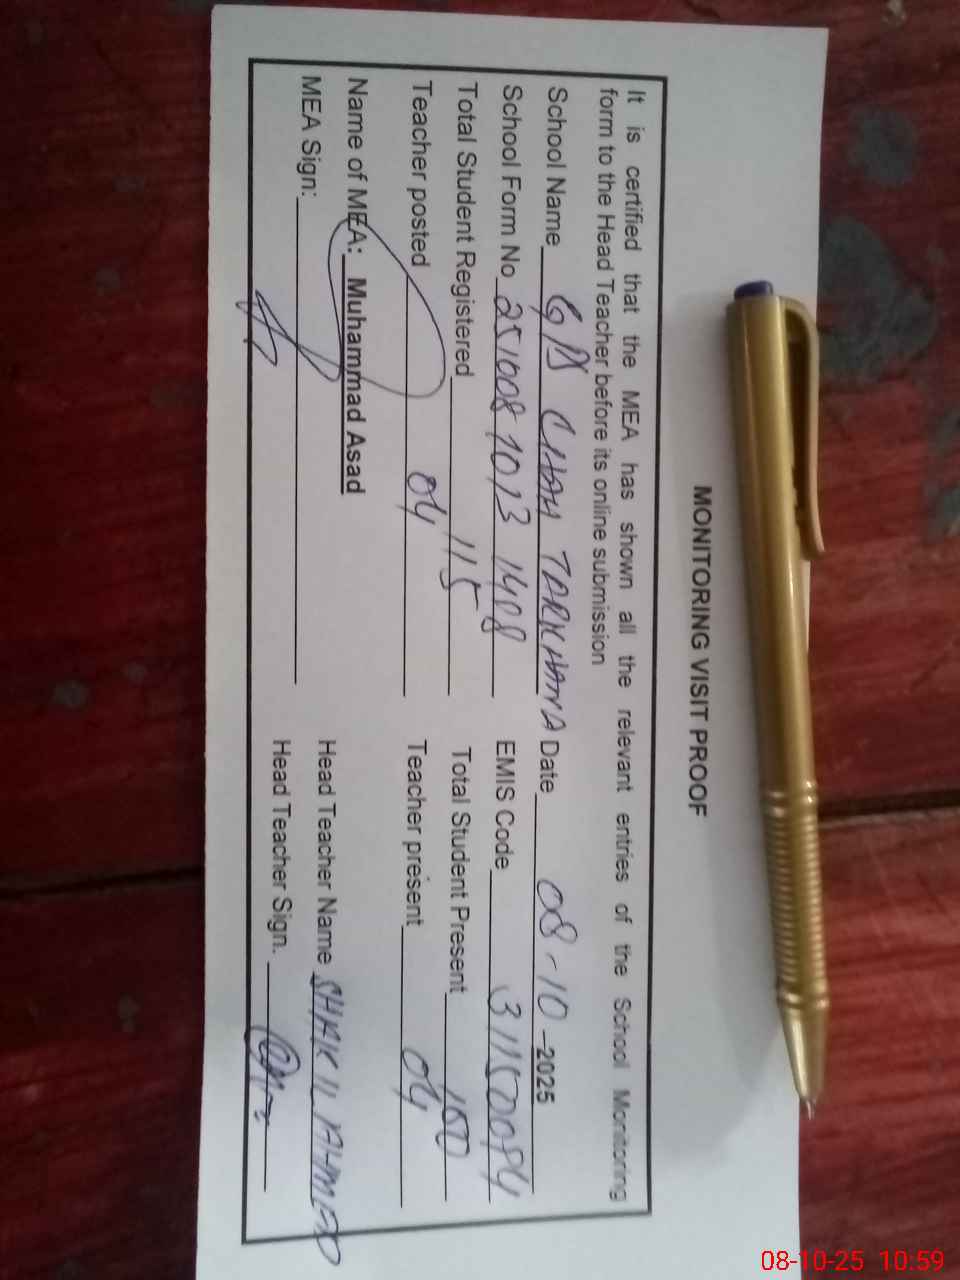 MONITORING VISIT PROOF
It is certified that the MEA has shown all the relevant entries of the School Monitoring
form to the Head Teacher before its online submission
School Name GPS CHAH TARKHANA Date 08-10-2025
School Form No 251008 1013 1408 EMIS Code 31150084
Total Student Registered 115 Total Student Present
Teacher posted 04 Teacher present 04
Name of MEA: Muhammad Asad Head Teacher Name SHAKIL AHMED
MEA Sign: Head Teacher Sign.
08-10-25 10:59